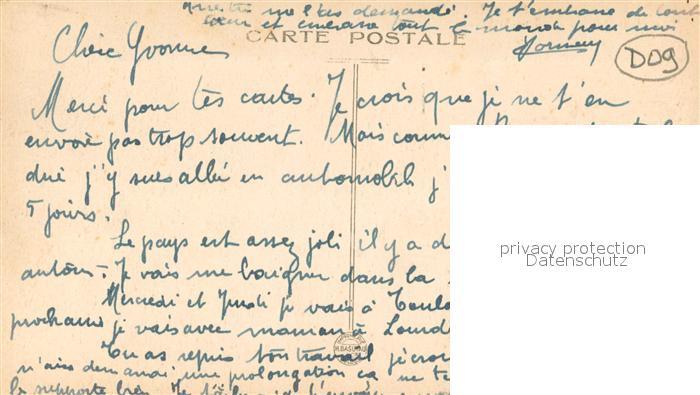 que tu me l'as demandé. Je t'embrasse de tout
cœur et embrasse tout le monde pour moi
CARTE POSTALE
Chère Yvonne
D09
Merci pour tes cartes. Je crois que je ne t'en
envoie pas trop souvent. Mais comm
dué j'y suis allée en automobile j'
5 jours.
Le pays est assez joli il y a d
autom. Je vais me baigner dans la
Mercredi et Jeudi je vais à Toulo
prochain je vais avec maman à Lourd
Tu as repris ton travail je croi
n'ais demandé une prolongation ça ne te
privacy protection
Datenschutz